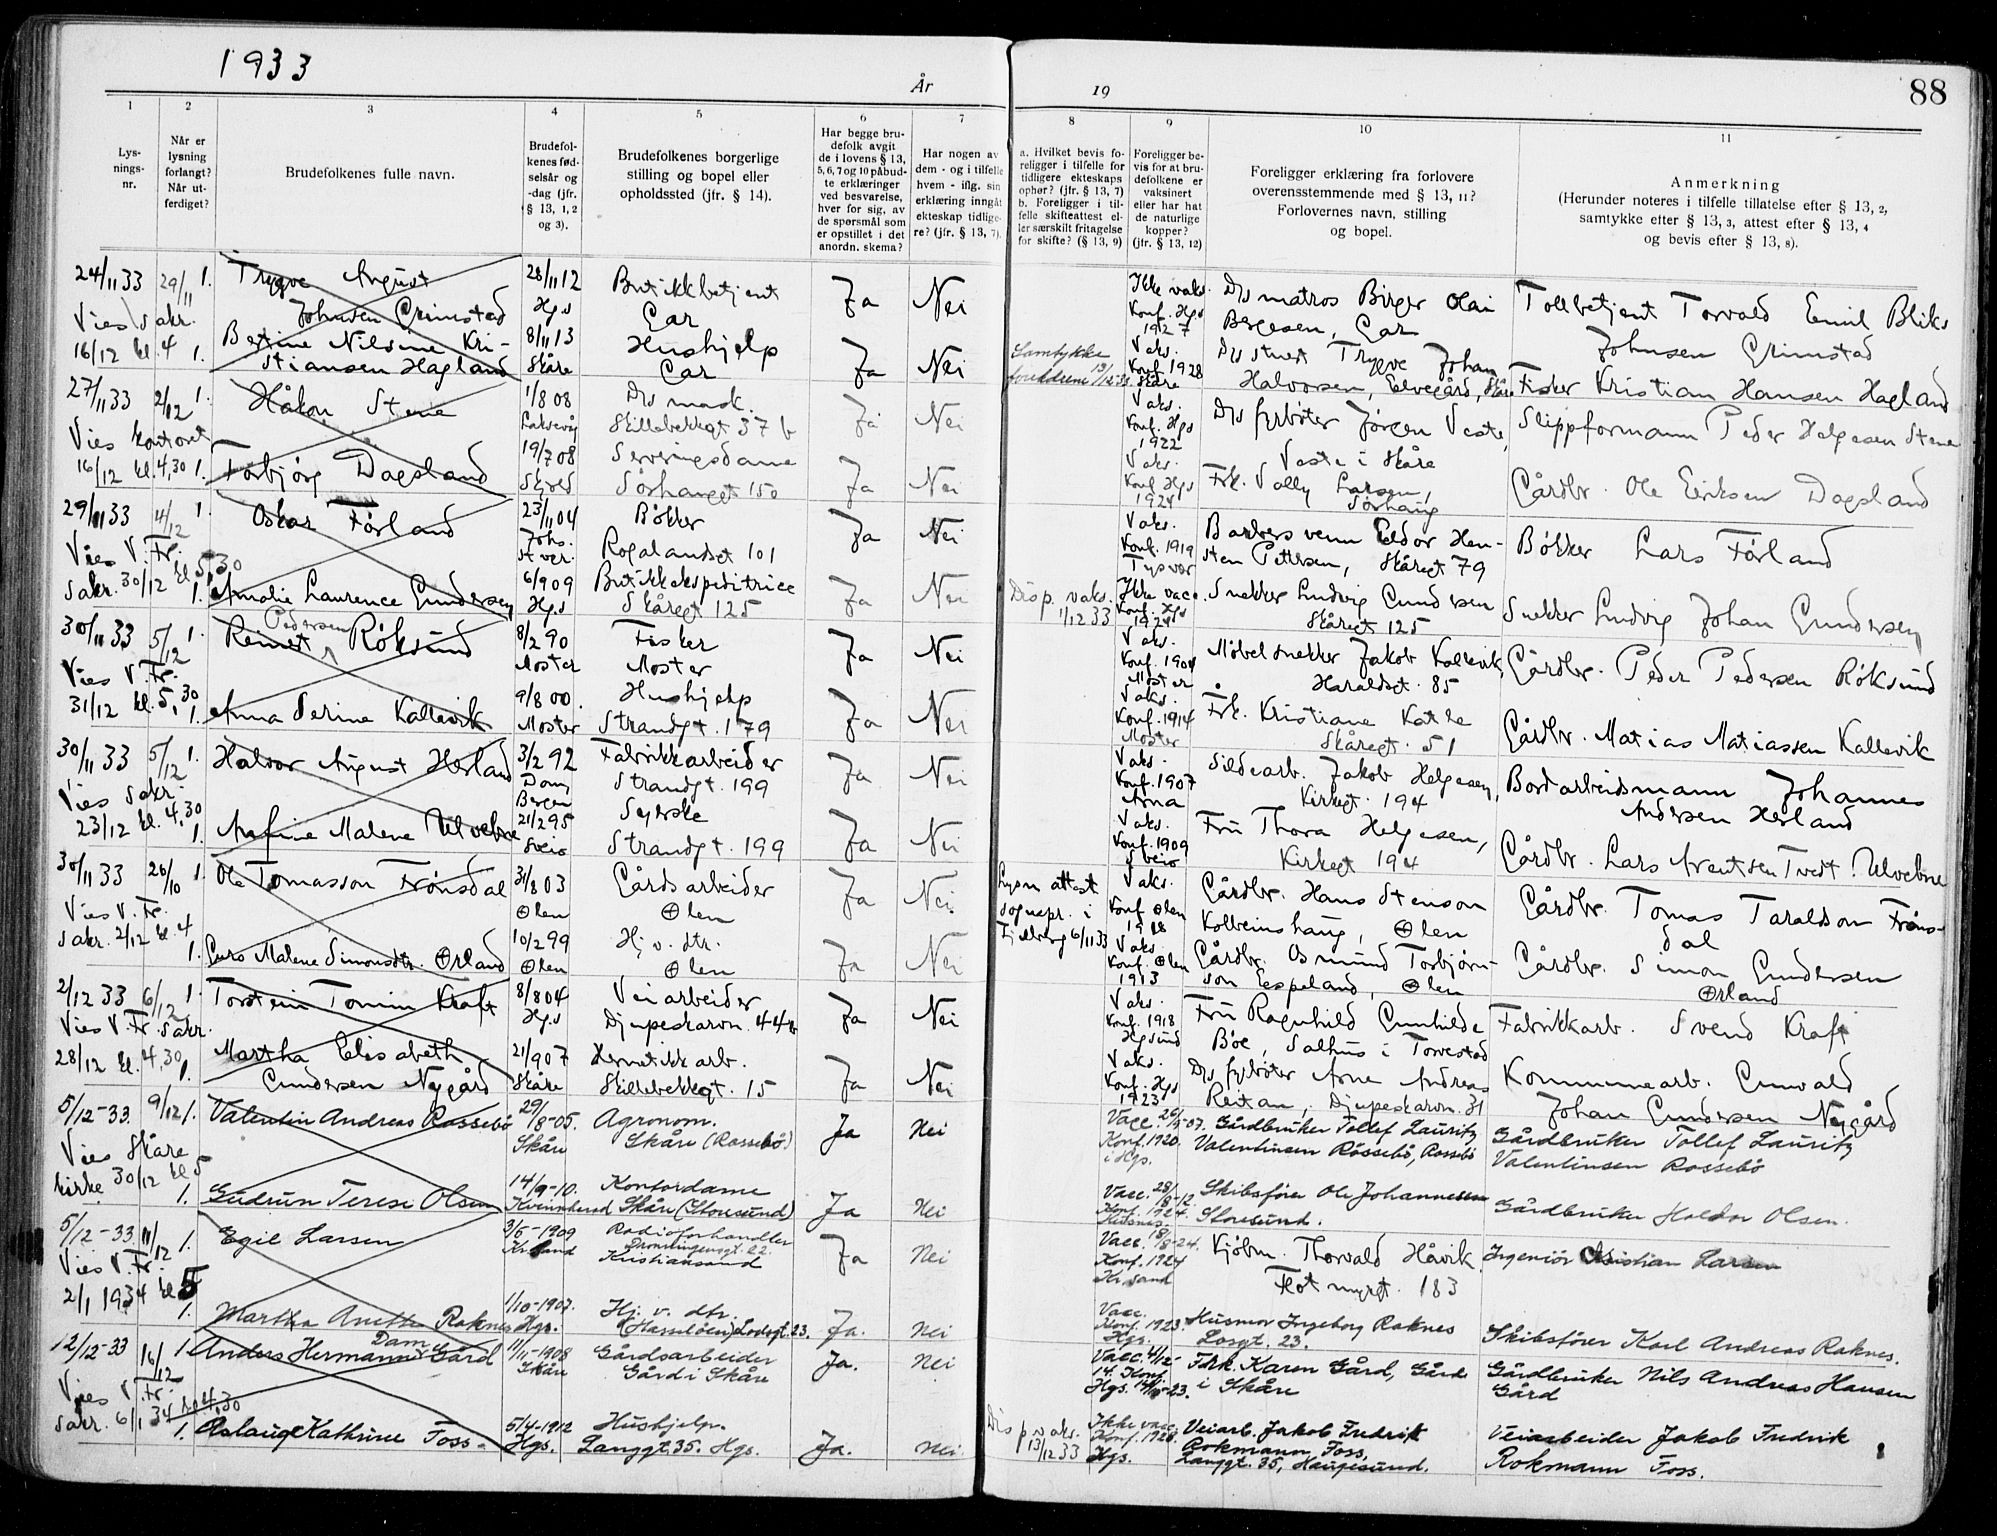 1933
År
19
88
1
2
3
4
5
6
7
8
9
10
11
Lys-
nings-
nr.
Når er
lysning
forlangt?
Når ut-
ferdiget?
Brudefolkenes fulle navn.
Brudefol-
kenes fød-
selsår og
-dag (jfr.
§ 13, 1, 2
og 3).
Brudefolkenes borgerlige
stilling og bopel eller
opholdssted (jfr. § 14).
Har begge bru-
defolk avgit
de i lovens § 13,
5, 6, 7 og 10 påbud-
te erklæringer
ved besvarelse,
hver for sig, av
de spørsmål som
er opstillet i det
anordn. skema?
Har nogen av
dem - og i tilfelle
hvem - iflg. sin
erklæring inngåt
ekteskap tidlige-
re? (jfr. § 13, 7).
a. Hvilket bevis fo-
religger i tilfelle for
tidligere ekteskaps
ophør? (jfr. § 13, 7)
b. Foreligger i til-
felle skifteattest el-
ler særskilt fritagelse
for skifte? (§ 13, 9)
Foreligger be-
vis for at bru-
defolkene er
vaksinert
eller har hat
de naturlige
kopper?
(jfr. § 13, 12)
Foreligger erklæring fra forlovere
overensstemmende med § 13, 11?
Forlovernes navn, stilling
og bopel.
Anmerkning
(Herunder noteres i tilfelle tillatelse efter § 13, 2,
samtykke efter § 13, 3, attest efter § 13, 4
og bevis efter § 13, 8).
24/11 33 29/11 1. Trygve August 28/11 12 Butikkbetjent Ja Nei Ikke vaks. Dks matros Birger Olai Tollbetjent Torvald Emil Bliks
Vies sakr. Johnsen Grimstad Hgs Gar Konf. Hgs 1927 Bergesen, Gar Johnsen Grimstad
16/12 kl. 4 1. Bertine Nilsine Kri- 8/11 13 Hushjelp Ja Nei Samtykke Vaks. Dks stuert Trygve Johan
stiansen Hagland Skåre Gar foreldrene 13/12 33 Konf. 1928 Skåre Halvorsen, Elvegård, Skåre Fisker Kristian Hansen Hagland
27/11 33 2/12 1. Håkon Stene 1/8 08 Dks mask. Ja Nei Vaks. Dks fyrbøter Jørgen Veste, Slippformann Peder Helgesen Stene
Vies kontoret Laksevåg Skillebekkgt 37 b Konf. Hgs 1922 Veste i Skåre
16/12 kl. 4,30 1. Torbjørg Dagsland 19/7 08 Serveringsdame Ja Nei Vaks. Frk. Vally Larsen, Gårdbr. Ole Eriksen Dagsland
Skjold Sørhauggt 150 Konf Hgs 1924 Sørhaug
29/11 33 4/12 1. Oskar Førland 23/11 04 Bøkker Ja Nei Vaks. Barbersvenn Eldor Hen- Bøkker Lars Førland
Vies V. Fr. Rogalandsgt 101 Konf. 1919 Tysvær sten Pettersen, Skåregt 79
sakr. 30/12 kl 5,30 1. Amalie Laurence Gundersen 6/9 09 Butikkekspeditrice Ja Nei Disp. vaks. Ikke vacc. Snekker Ludvig Gundersen Snekker Ludvig Johan Gundersen
Hgs Skåregt 125 1/12 33 Konf. Hgs 1924 Skåregt 125
30/11 33 5/12 1. Reinert Pedersen Røksund 8/2 90 Fisker Ja Nei Vaks. Møbelsnekker Jakob Kallevik, Gårdbr. Peder Pedersen Røksund
Vies V. Fr. Moster Moster Konf. 1904 Moster Haraldsgt. 85
31/12 kl. 5,30 1. Anna Serine Kallevik 9/8 00. Hushjelp Ja Nei Vaks. Frk. Kristiane
Moster Strandgt. 179 Konf. 1914 Moster Skåregt. 51 Gårdbr. Matias Matiassen Kallevik
30/11 33 5/12 1. Halvor August Herland 3/2 92 Fabrikkarbeider Ja Nei Vaks. Sildearb. Jakob Helgesen, Bordarbeidsmann Johannes
Vies sakr. Dom, Bergen Strandgt. 199 Konf. 1907 Arna Kirkegt. 194 Andersen Herland
23/12 kl. 4,30 1. Malene Ulvebne 21/2 95 Syerske Ja Nei Vaks. Fru Thora Helgesen,
Sveio Strandgt. 199 Konf. 1909 Sveio Kirkegt 194 Gårdbr. Lars Arentsen Tvedt. Ulvebne
30/11 33 26/10 1. Ole Tomasson Frønsdal 31/8 03 Gårdsarbeider Ja Nei Lysn attest Vaks. Gårdbr. Hans Stenson Gårdbr. Tomas Taraldson Frøns-
Vies V. Fr. Ølen Ølen sognepr. i Konf Ølen 1918 Kolbeinshaug, Ølen dal
sakr. 2/12 kl 4 1. Malene Simonsdtr. Ørland 10/2 99 Hj. v. dtr. Ja Nei Fjelberg 6/11 33 Vaks. Gårdbr. Osmund Torbjørn- Gårdbr. Simon Gundersen
Ølen Ølen Konf. Ølen 1913 son Espeland, Ølen Ørland
2/12 33 6/12 1. Torstein Tomin Kraft 8/8 04 Veiarbeider Ja Nei Vaks. Fru Ragnhild Gunhilde Fabrikkarb. Svend Kraft
Vies V. Fr. sakr. Hgs Djupeskarvn. 44 b Konf. 1918 Hgsund Bøe, Salhus i Torvestad
28/12 kl. 4,30 1. Martha Elisabeth 21/9 07 Hermetikkarb. Ja Nei Vaks. Dks fyrbøter Arne Andreas Kommunearb. Gunvald
Gundersen Nygård Skåre Skillebekkgt. 15 Konf. Hgs 1923 Reitan, Djupeskarvn. 31 Johan Gundersen Nygård
5/12-33. 9/12 1. Valentin Andreas Rossebø 29/8-05. Agronom. Ja Nei Vacc. 26/9-07. Gårdbruker Tollef Lauritz Gårdbruker Tollef Lauritz
Vies Skåre Skåre Skåre (Rossebø) Konf. 1920. i Hgs. Valentinsen Rossebø, Rossebø Valentinsen Rossebø
kirke 30/12 kl 5 1. Gudrun Terese Olsen 14/9-10. Kontordame Ja Nei Vacc. 28/8-12 Skibsfører Ole Johannesen Gårdbruker Haldor Olsen.
Kvinnherad Skåre (Storesund) Konf. 1924. Storesund.
5/12-33. 11/12 1. Egil Larsen 3/5-1909 Radioforhandler Ja Nei Vacc. 18/8-24. Kjøbm. Thorvald Håvik, Ingeniør Christian Larsen
Vies V. Fr. Kr.sand Dronningensgt. 22. Kristiansand Konf. 1924 Kr. sand Flotmyrgt. 183
2/1 1934 kl 5 1. Martha Anette Roknes 1/10-1907. Hj. v. dtr. Ja. Nei Vacc. Husmor Ingeborg Roknes Skibsfører Karl Andreas Roknes.
Hgs. (Hasseløen) Losgt. 23. Konf. 1923. Hgs. Losgt. 23.
12/12-33 16/12 1. Anders Hermann Dam Gård 11/11-1908 Gårdsarbeider Ja. Nei Vacc. 4/12- Frk. Karen Gård, Gård Gårdbruker Nils Andreas Hansen
Vies V. Fr. Skåre Gård i Skåre 14. Konf. Hgs. 14/10-23. i Skåre Gård
sakr. 6/1 34 kl 4,30 1. Aslaug Kathrine Foss. 5/4-1912 Hushjelp. Ja. Nei Disp vaks. Ikke vacc. Veiarb. Jakob Fredrik Veiarbeider Jakob Fredrik
Hgs. Langgt. 35. Hgs. 13/12 33 Konf. 1926. Hgs. Rokmann Foss, Langgt. 35, Haugesund. Rokmann Foss.